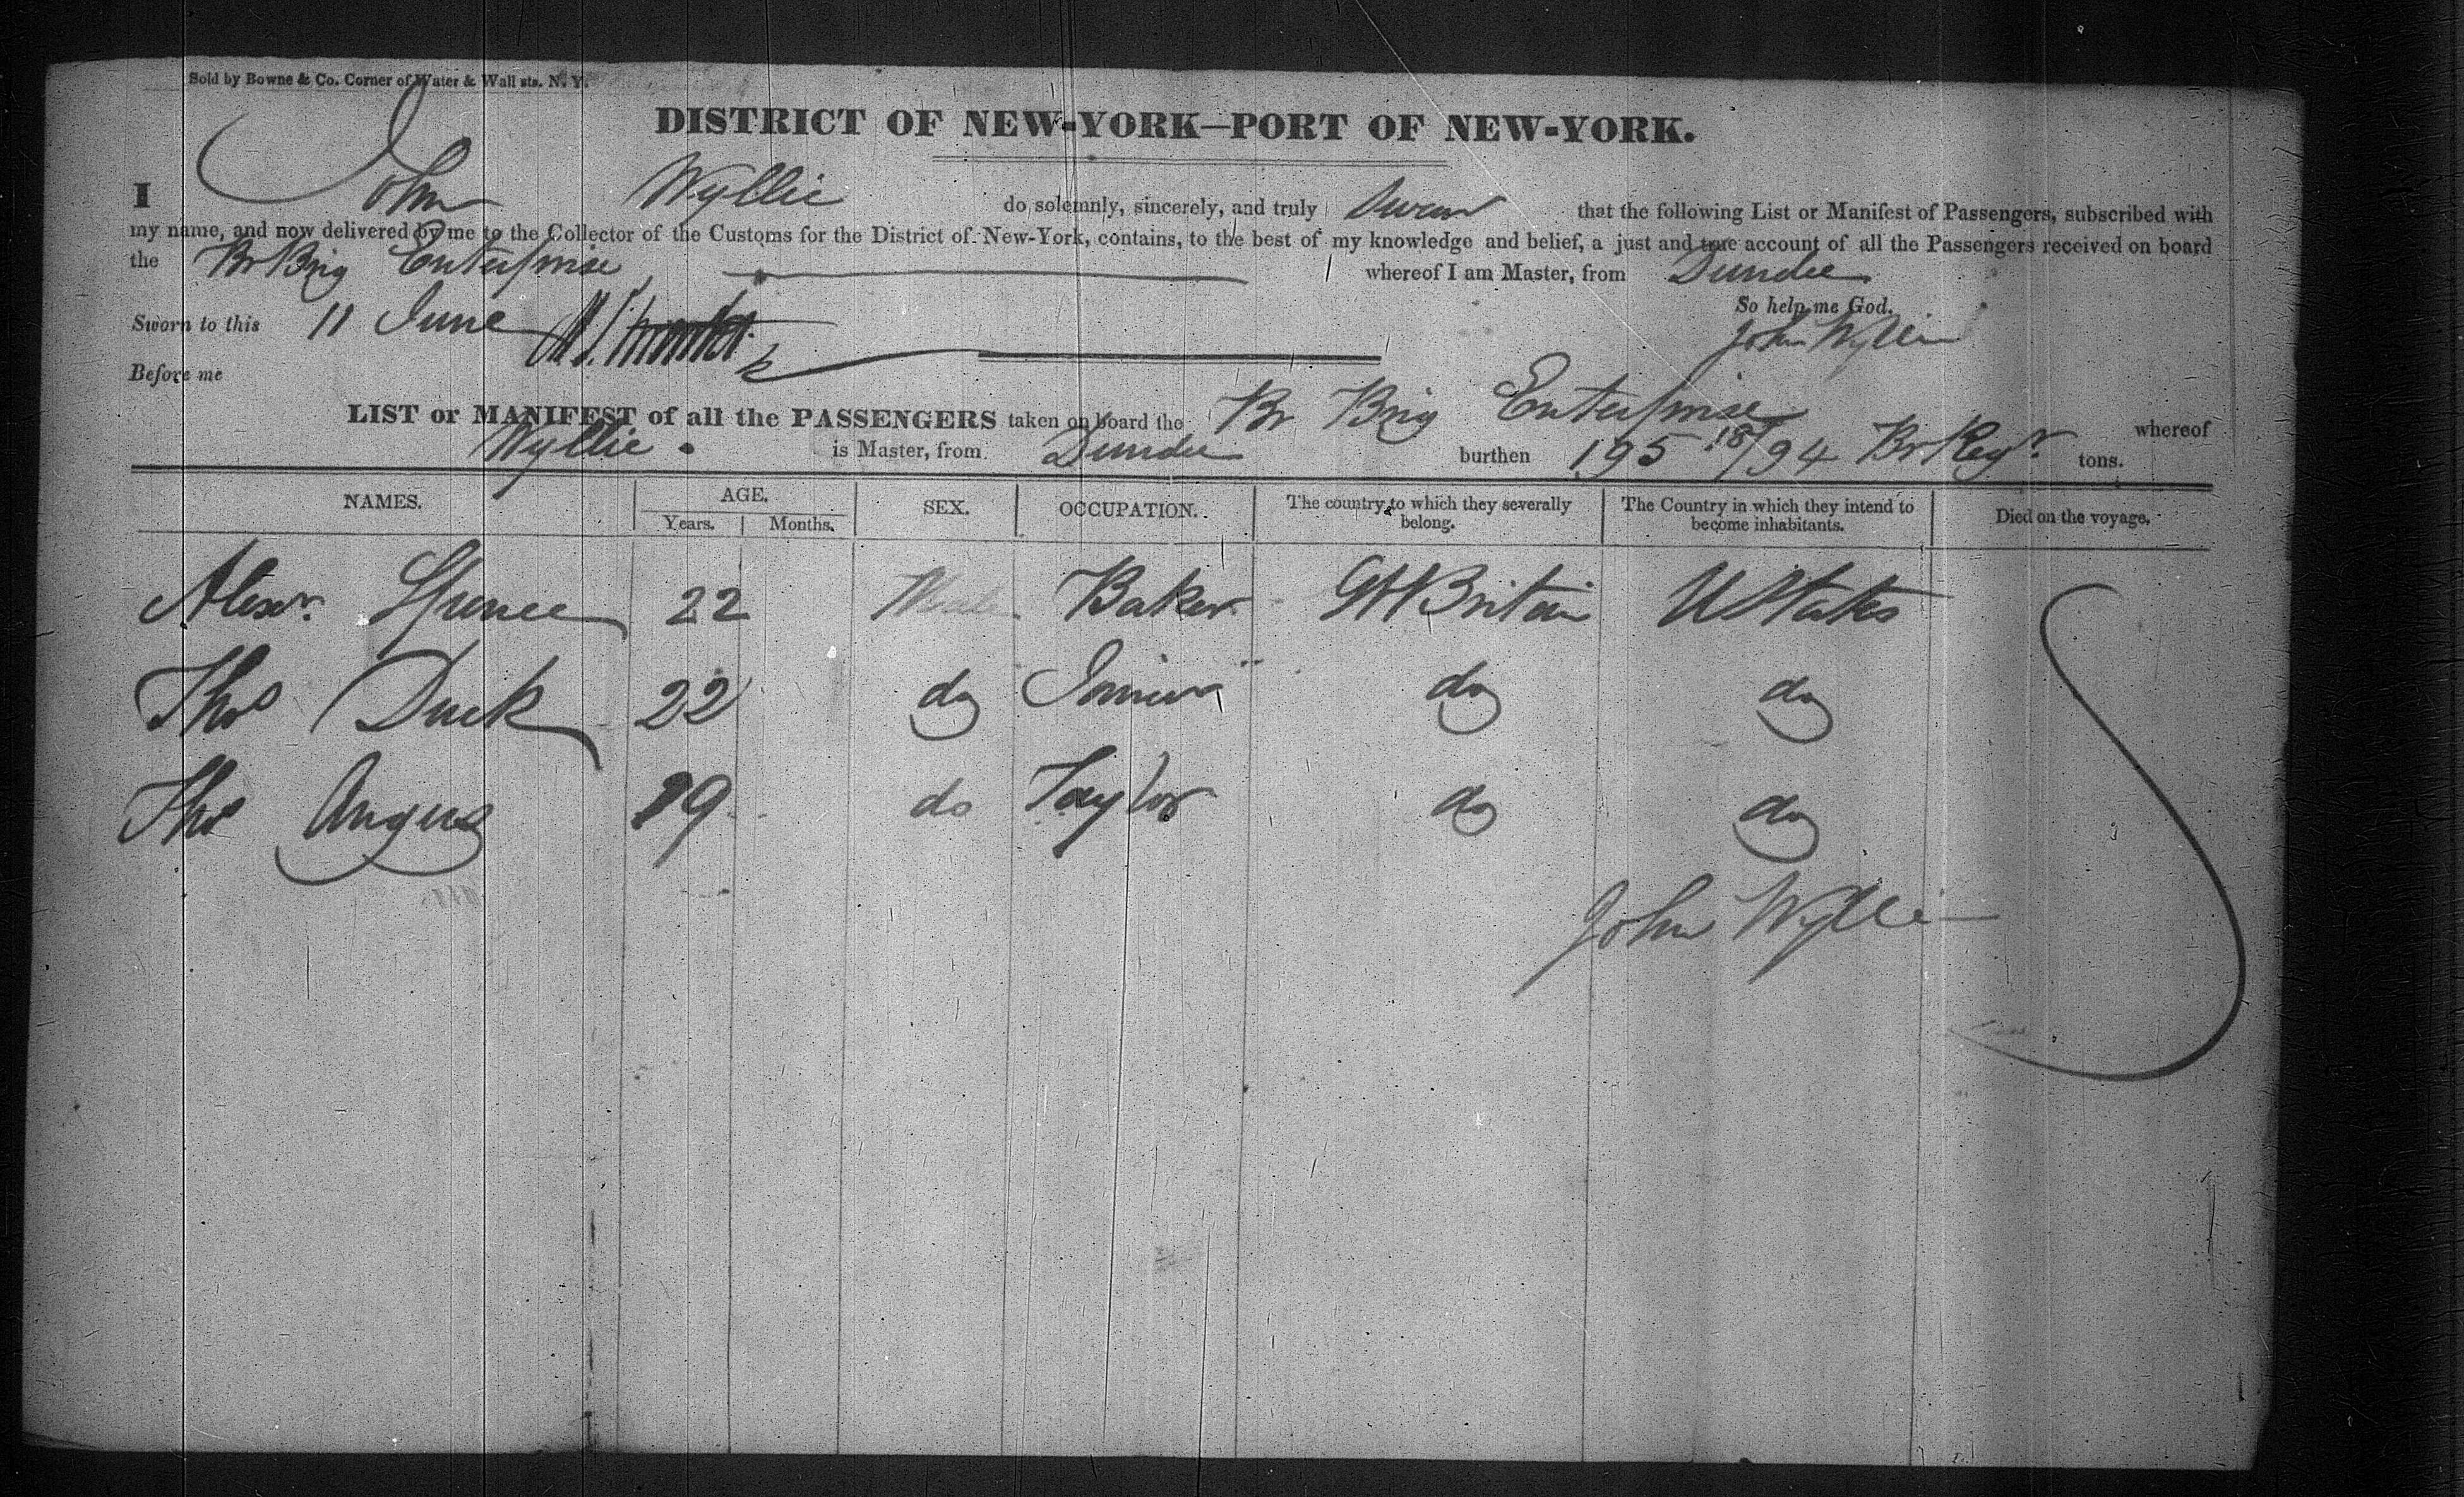 Sold by Bowne & Co. Corner of Water & Wall sts. N. Y.
DISTRICT OF NEW-YORK—PORT OF NEW-YORK.
I John Wyllie do solemnly, sincerely, and truly Swear that the following List or Manifest of Passengers, subscribed with
my name, and now delivered by me to the Collector of the Customs for the District of New-York, contains, to the best of my knowledge and belief, a just and true account of all the Passengers received on board
the Br Brig Enterprise whereof I am Master, from Dundee
So help me God.
Sworn to this 11 June John Wyllie
Before me
LIST or MANIFEST of all the PASSENGERS taken on board the Br Brig Enterprise whereof
Wyllie is Master, from Dundee burthen 195 18/94 Br Regr tons.
NAMES. AGE. SEX. OCCUPATION. The country to which they severally belong. The Country in which they intend to become inhabitants. Died on the voyage.
Years. Months.
Alexr. Spence 22 Male Baker Gt Britain U States
Thos Duck 22 do do do
Thos Angus 29 do Taylor do do
John Wyllie